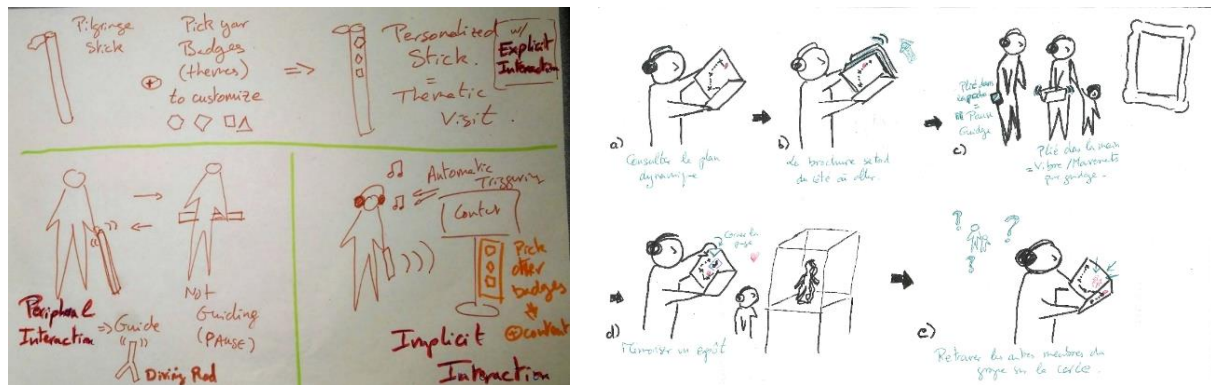 Pilgrimage
Stick
Pick your
Badges
(themes)
to customize
⇒
Personalized
Stick.
=
Thematic
Visit.
w/
Explicit
Interaction
Peripheral
Interaction
⇒ Guide
Diving Rod
Not
Guiding
(PAUSE)
Automatic
Triggering
Content
Pick
other
badges
⊕ content
Implicit
Interaction
a)
Consulter le plan
dynamique
b)
La brochure se tord
du côté où aller.
c)
Plié dans
=
Pause
Guidage
Plié dans la main
= Vibre / Mouvements
pour guidage.
d)
Corner la
page
Mémoriser un
e)
? ? ?
Retrouver les autres membres du
groupe sur la carte.